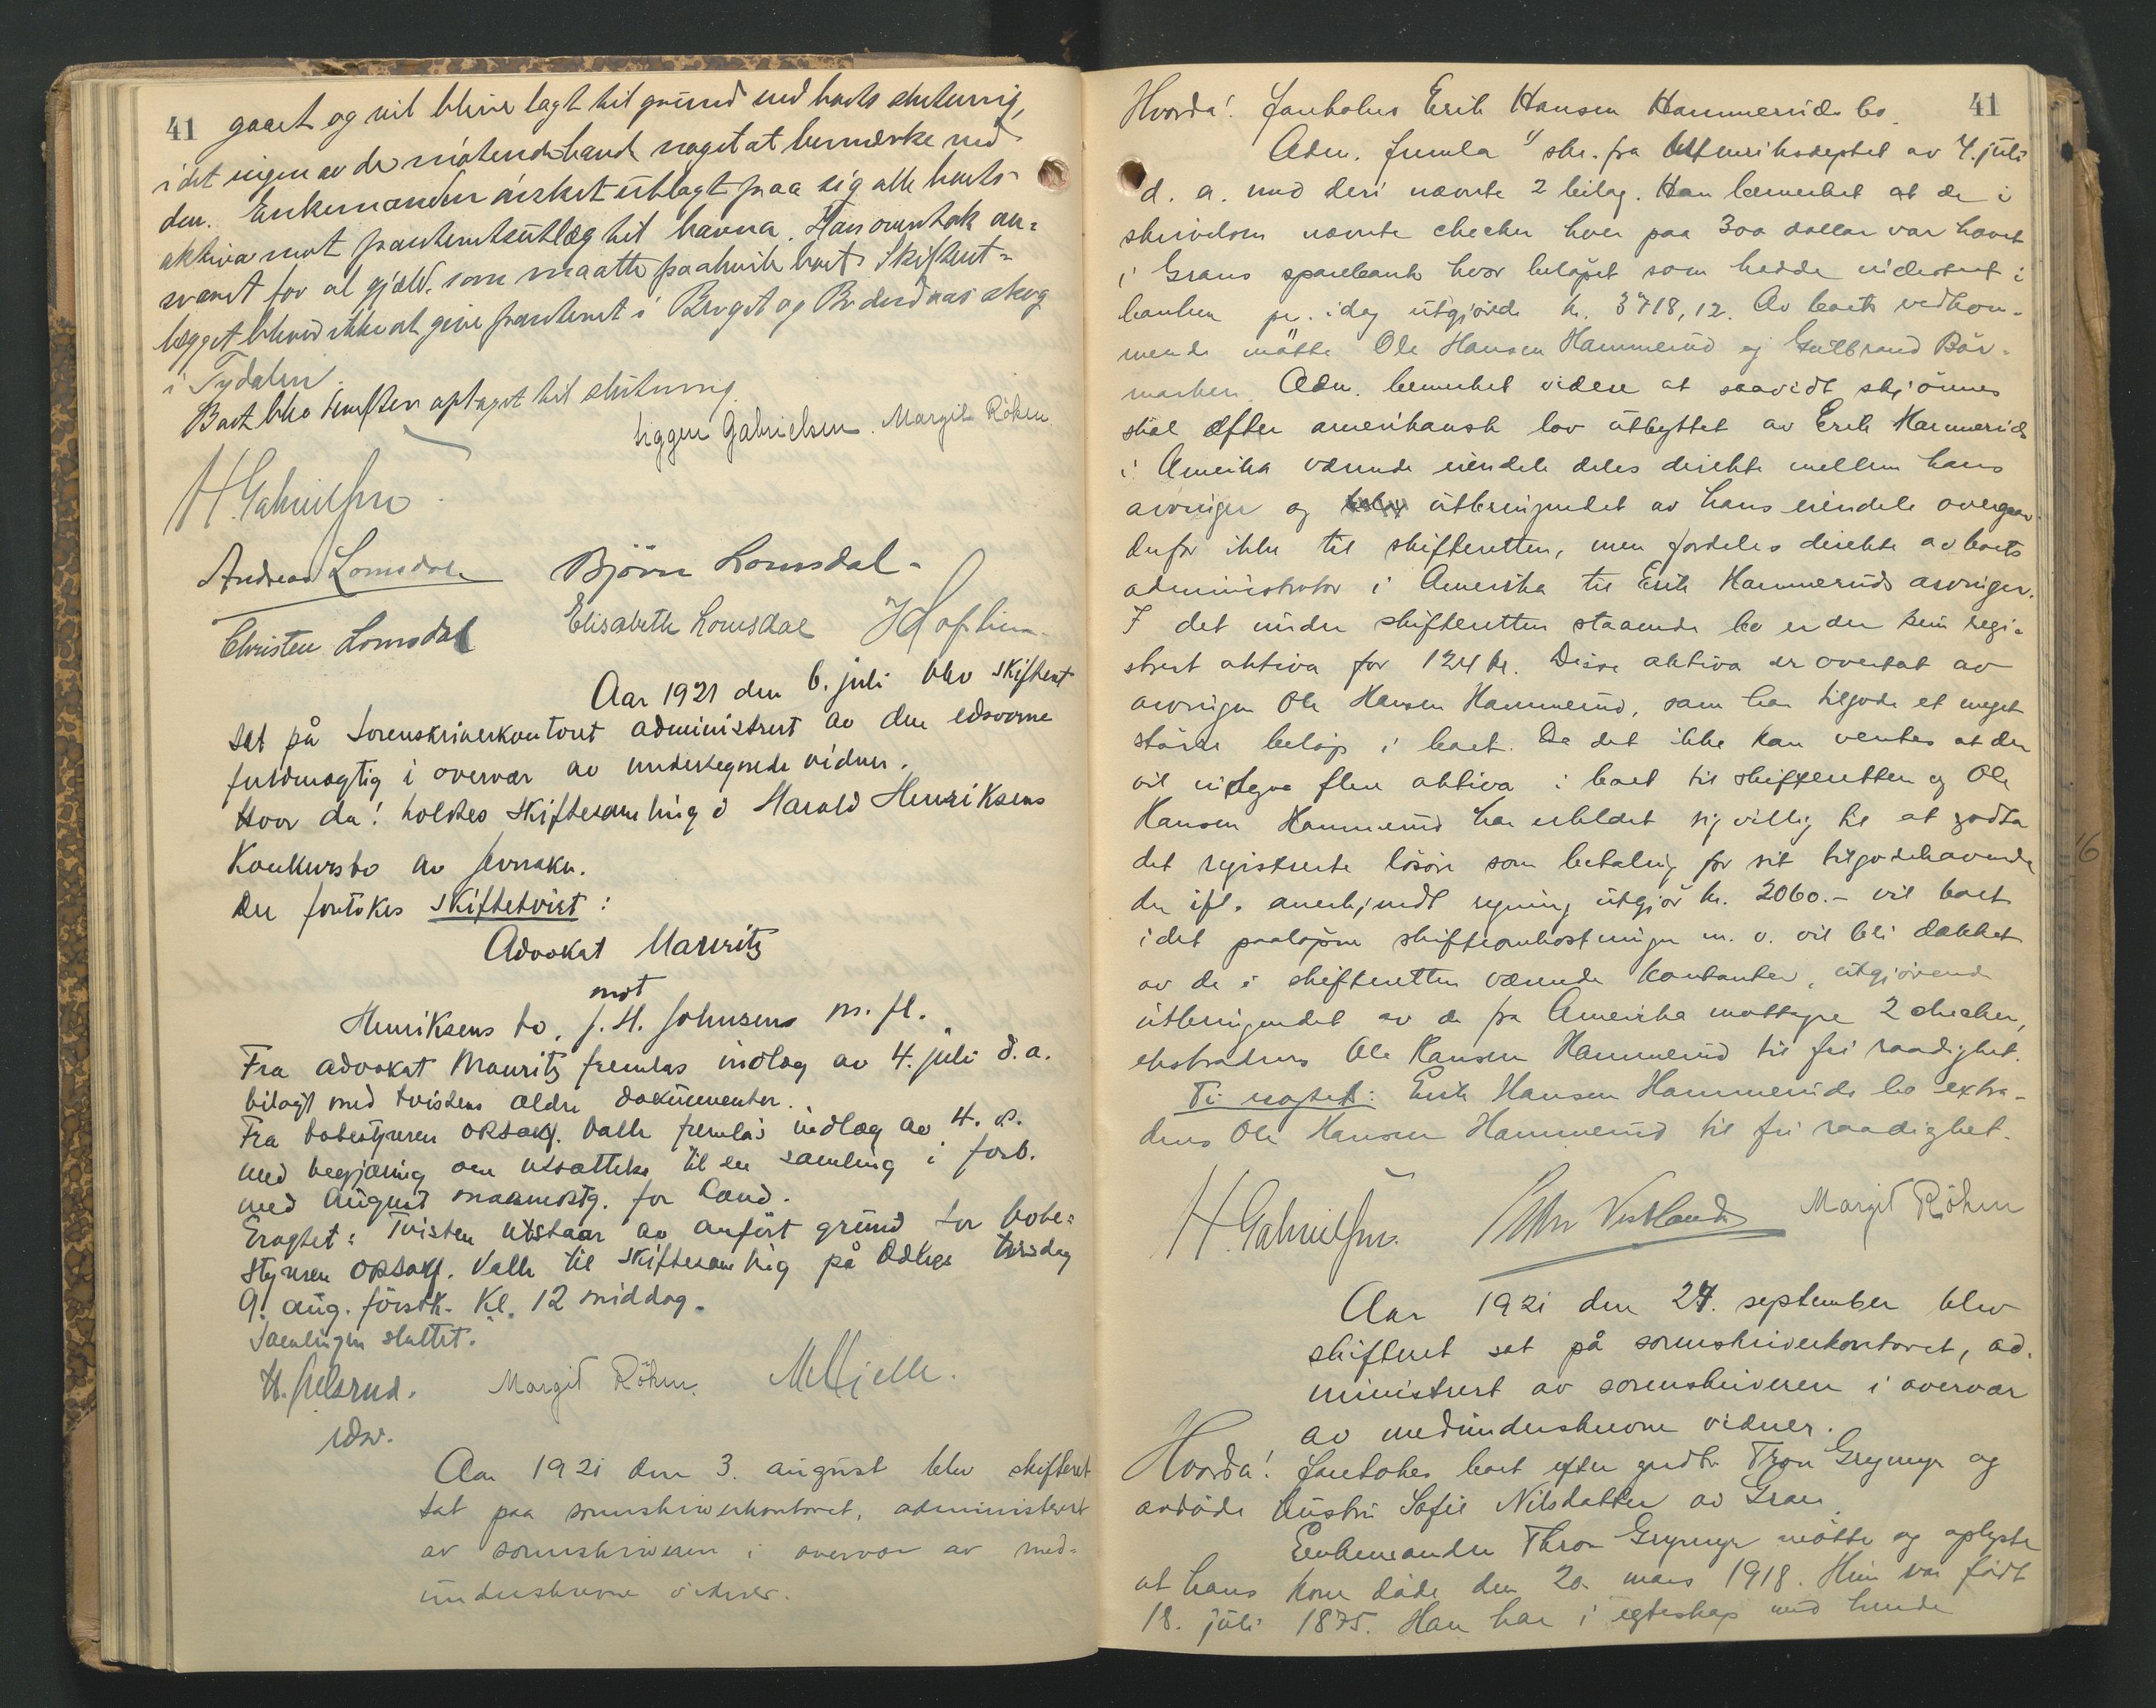 41
gaaet og vil bliver lagt til grund ved boets slutning,
idet ingen av de møtende havde noget at bemærke ved
den. Enkemanden ønsket utlagt paa sig alle boets
aktiva mot panteretsutlæg til barna. Han overtok an-
svaret for al gjæld som maatte paahvile boet. Skifteut-
lægget blev ikke at give panteret i og skog
i Tydalen.
Boet blev derefter optaget til slutning.
Gabrielsen. Margit Röhm.
H. Gabrielsen
Andreas Lomsdalen Björn Lomsdal.
Christen Lomsdal Elisabeth Lomsdal
Aar 1921 den 6. juli blev skifteret
sat på sorenskriverkontoret administrert av den edsvorne
fuldmægtig i overvær av undertegnede vidner.
Hvor da! holdtes skiftesamling i Harald Henriksens
Konkursbo av Jevnaker.
Der foretokes skiftetvist:
Advokat Mauritz
mot
Henriksens bo, J. H. Johnsens m. fl.
Fra advokat Mauritz fremlas indlæg av 4. juli d. a.
bilagt med tvistens ældre dokumenter.
Fra bobestyreren oRsakf. Valle fremlås indlæg av 4. ds.
med begjæring om utsættelse til en samling i forb.
med august maanedstg. for Land.
Eragtet: Tvisten utstaar av anført grund for bobe-
styreren oRsakf. Valle til skiftesamling på Odnes tirsdag
9. aug. førstk. Kl. 12 middag.
Samlingen sluttet.
H. Margit Röhm.
edsv.
Aar 1921 den 3. august blev skifteret
sat paa sorenskriverkontoret, administrert
av sorenskriveren i overvær av med-
underskrevne vidner.
41
Hvorda! foretokes Erik Hansen Hammeruds bo.
Adm. fremla 1/ skr. fra Utenriksdeptet av 4. juli
d. a. med deri nævnte 2 bilag. Han bemerket at de i
skrivelsen nævnte checker hver paa 300 dollar var hævet
i Grans sparebank hvor beløpet som hadde indestaat i
banken pr. idag utgjørde kr. 3718,12. Av boets vedkom-
mende møtte Ole Hansen Hammerud og Gulbrand Bår-
marken. Adm. bemerket videre at saavidt skjønnes
skal efter amerikansk lov utbyttet av Erik Hammeruds
i Amerika værende eiendele deles direkte mellem hans
arvinger og utbringendet av hans eiendele overgaar
derfor ikke til skifteretten, men fordeles direkte av boets
administrator i Amerika til Erik Hammeruds arvinger.
I det under skifteretten staaende bo er der kun regi-
strert aktiva for 124 kr. Disse aktiva er overtat av
arvingen Ole Hansen Hammerud, som har tilgode et meget
større beløp i boet. Da det ikke kan ventes at der
vil indgaa flere aktiva i boet til skifteretten og Ole
Hansen Hammerud har erklæret sig villig til at godta
det registrerte løsøre som betaling for sit tilgodehavende
der ifl. anerkjendt regning utgjør kr. 2060.- vil boet
idet paaløpne skifteomkostninger m. v. vil bli dækket
av de i skifteretten værende kontanter, utgjørende
utbringendet av de fra Amerika mottagne 2 checker,
ekstraderes Ole Hansen Hammerud til fri raadighet.
Ti eragtet: Erik Hansen Hammeruds bo extra-
deres Ole Hansen Hammerud til fri raadighet.
H. Gabrielsen. Margit Röhm
Aar 1921 den 24. september blev
skifteret sat på sorenskriverkontoret, ad-
ministrert av sorenskriveren i overvær
av medunderskrevne vidner.
Hvorda! foretokes boet efter grdbr. Tron Grymyr og
avdøde hustru Sofie Nilsdatter av Gran.
Enkemanden Thron Grymyr møtte og oplyste
at hans kone døde den 20. mars 1918. Hun var født
18. juli 1875. Han har i egteskap med hende